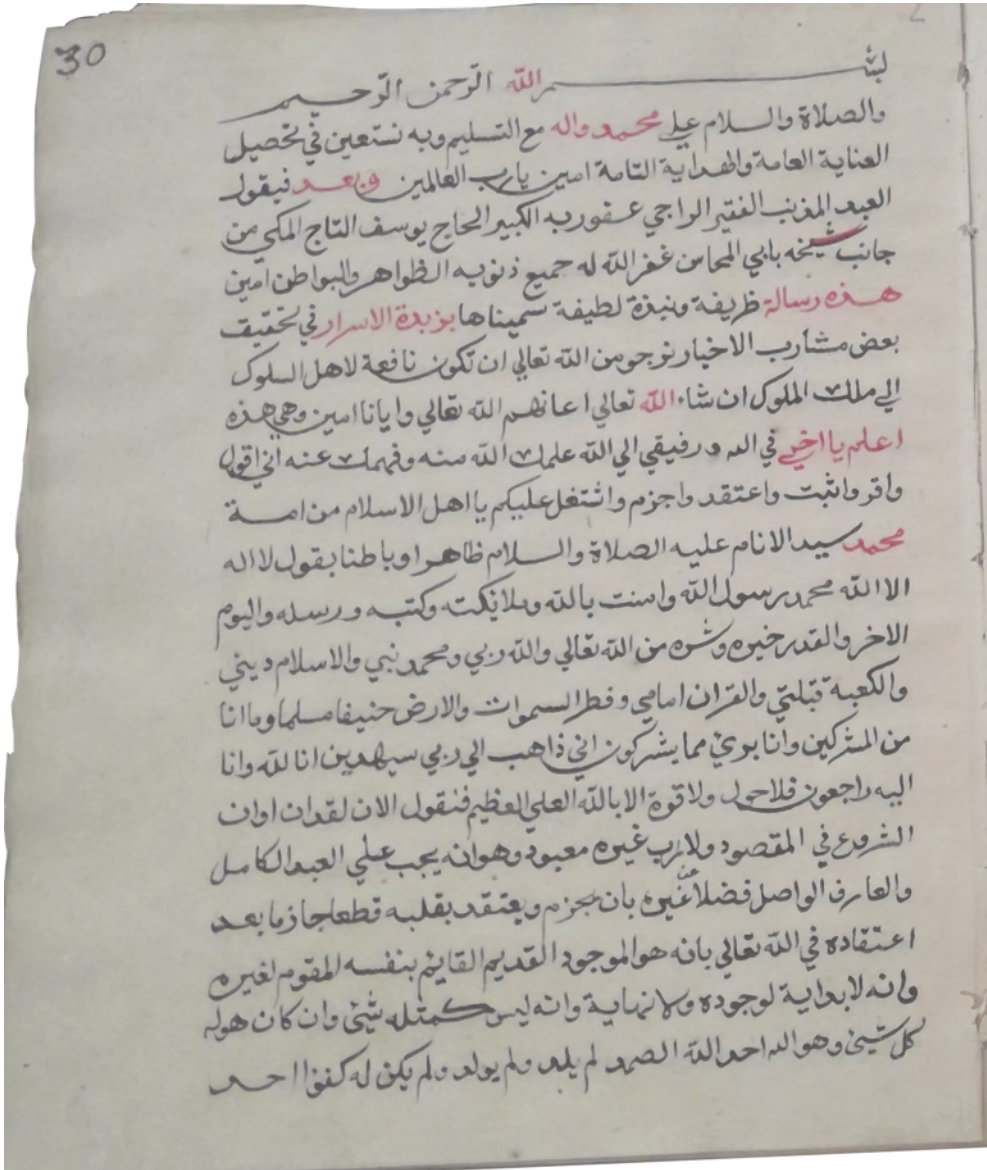 30
بسم الله الرحمن الرحيم
والصلاة والسلام علي محمد واله مع التسليم وبه نستعين في تحصيل
العناية العامة والهداية التامة امين يارب العالمين وبعد فيقول
العبد المذنب الفقير الراجي عفو ربه الكبير الحاج يوسف التاج المكي من
جانب شيخه بابي المحاسن غفر الله له جميع ذنوبه الظواهر والبواطن امين
هذه رسالة ظريفة ونبذة لطيفة سميناها بزبدة الاسرار في تحقيق
بعض مشارب الاخيار نرجو من الله تعالي ان تكون نافعة لاهل السلوك
الي ملك الملوك ان شاء الله تعالي اعانهم الله تعالي وايانا امين وهي هذه
اعلم يا اخي في الله ورفيقي الي الله علمك الله منه وفهمك عنه اني اقول
واقر واثبت واعتقد واجزم واشتغل عليكم يا اهل الاسلام من امة
محمد سيد الانام عليه الصلاة والسلام ظاهرا وباطنا بقول لا اله
الا الله محمد رسول الله وامنت بالله وملايكته وكتبه ورسله واليوم
الاخر والقدر خيره وشره من الله تعالي والله ربي ومحمد نبي والاسلام ديني
والكعبة قبلتي والقران امامي وفطر السموات والارض حنيفا مسلما وما انا
من المشركين وانا بريء مما يشركون اني ذاهب الي ربي سيهدين انا لله وانا
اليه راجعون فلا حول ولا قوة الا بالله العلي العظيم فنقول الان لقد ان اوان
الشروع في المقصود ولا رب غيره معبود وهو انه يجب علي العبد الكامل
والعارف الواصل فضلا عن غيره بان يجزم ويعتقد بقلبه قطعا جازما بعد
اعتقاده في الله تعالي بانه هو الموجود القديم القايم بنفسه المقوم لغيره
وانه لا بداية لوجوده ولا نهاية وانه ليس كمثله شئ وان كان هو له
كل شيئ وهو الله احد الله الصمد لم يلد ولم يولد ولم يكن له كفوا احد